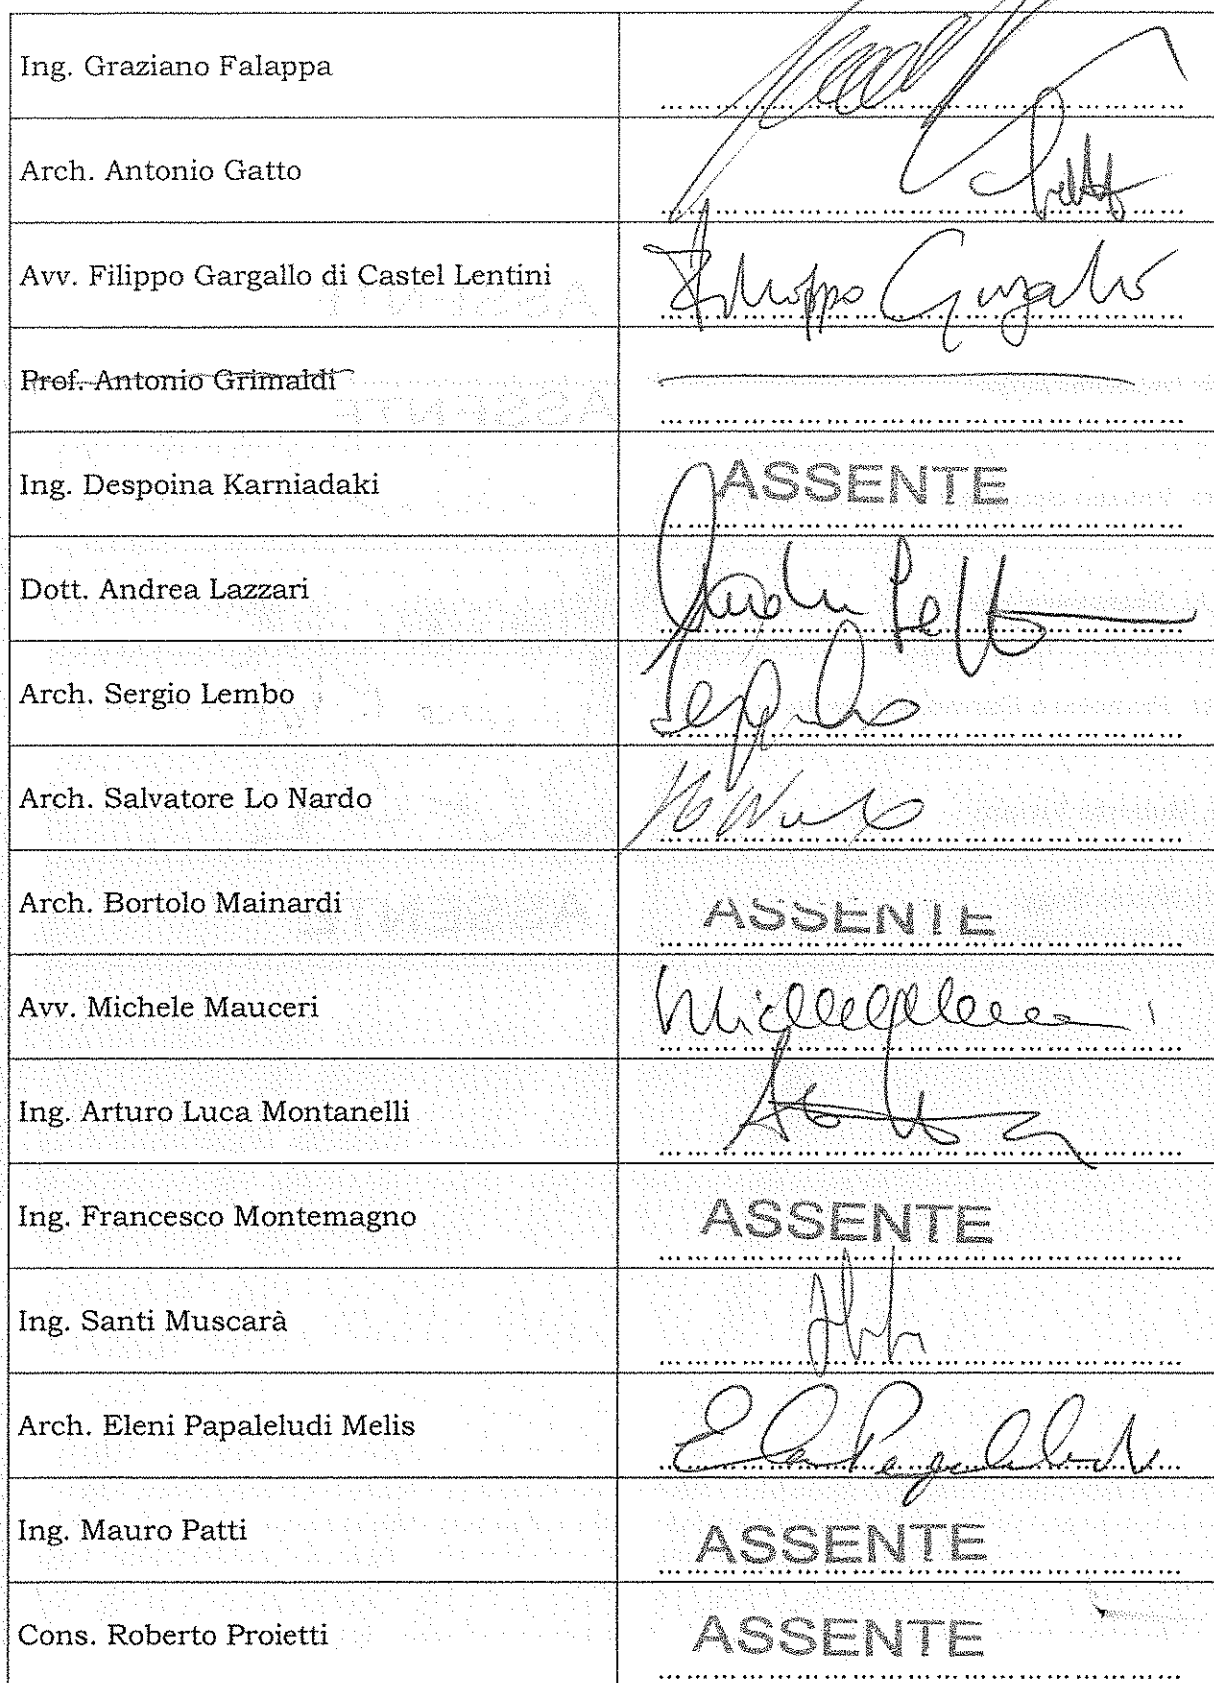 Ing. Graziano Falappa
Arch. Antonio Gatto
Avv. Filippo Gargallo di Castel Lentini
Filippo Gargallo
Prof. Antonio Grimaldi
Ing. Despoina Karniadaki
ASSENTE
Dott. Andrea Lazzari
Arch. Sergio Lembo
Arch. Salvatore Lo Nardo
Arch. Bortolo Mainardi
ASSENTE
Avv. Michele Mauceri
Ing. Arturo Luca Montanelli
Ing. Francesco Montemagno
ASSENTE
Ing. Santi Muscarà
Arch. Eleni Papaleludi Melis
Ing. Mauro Patti
ASSENTE
Cons. Roberto Proietti
ASSENTE